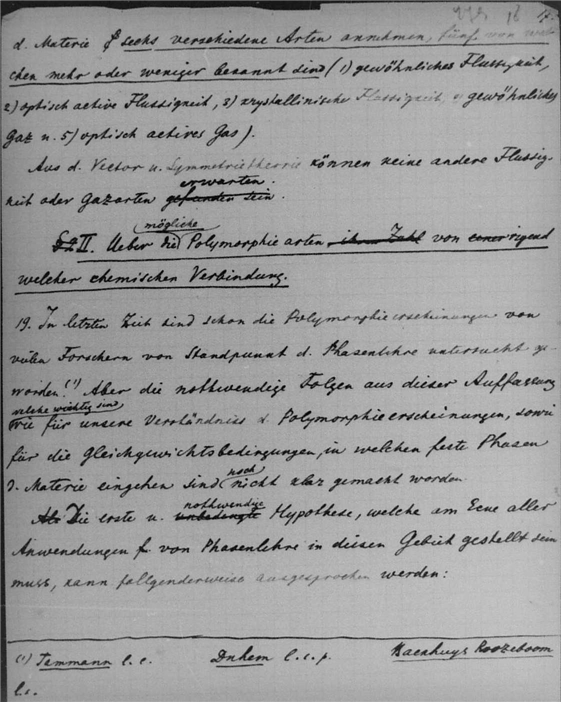 d. Materie f sechs verschiedene Arten annehmen, fünf von wel-
chen mehr oder weniger bekannt sind (1) gewöhnliches Flussigkeit,
2) optisch active Flussigkeit, 3) krystallinische Flussigkeit, 4) gewöhnliches
Gaz u. 5) optisch actives Gas).
Aus d. Vector u. Symmetrietheorie können keine andere Flussig-
erwarten.
keit oder Gazarten gefunden sein.
mögliche
II. Ueber die Polymorphie arten ihre Zahl von einer irgend
welcher chemischen Verbindung.
19. In letzten Zeit sind schon die Polymorphieerscheinungen von
vielen Forschern von Standpunkt d. Phasenlehre untersucht ge-
worden.(1) Aber die nothwendige Folgen aus dieser Auffassung
welche wichtig sind
wie für unsere Verständniss d. Polymorphieerscheinungen, sowie
für die Gleichgewichtsbedingungen, in welchen feste Phasen
noch
d. Materie eingehen sind nicht klar gemacht worden.
nothwendige
Als Die erste u. unbedingte Hypothese, welche am Ecke aller
Anwendungen f. von Phasenlehre in diesen Gebiet gestellt sein
muss, kann follgenderweise ausgesprochen werden:
(1) Tammann l. c. Duhem l. c. p. Bakhuys Roozeboom
l. c.